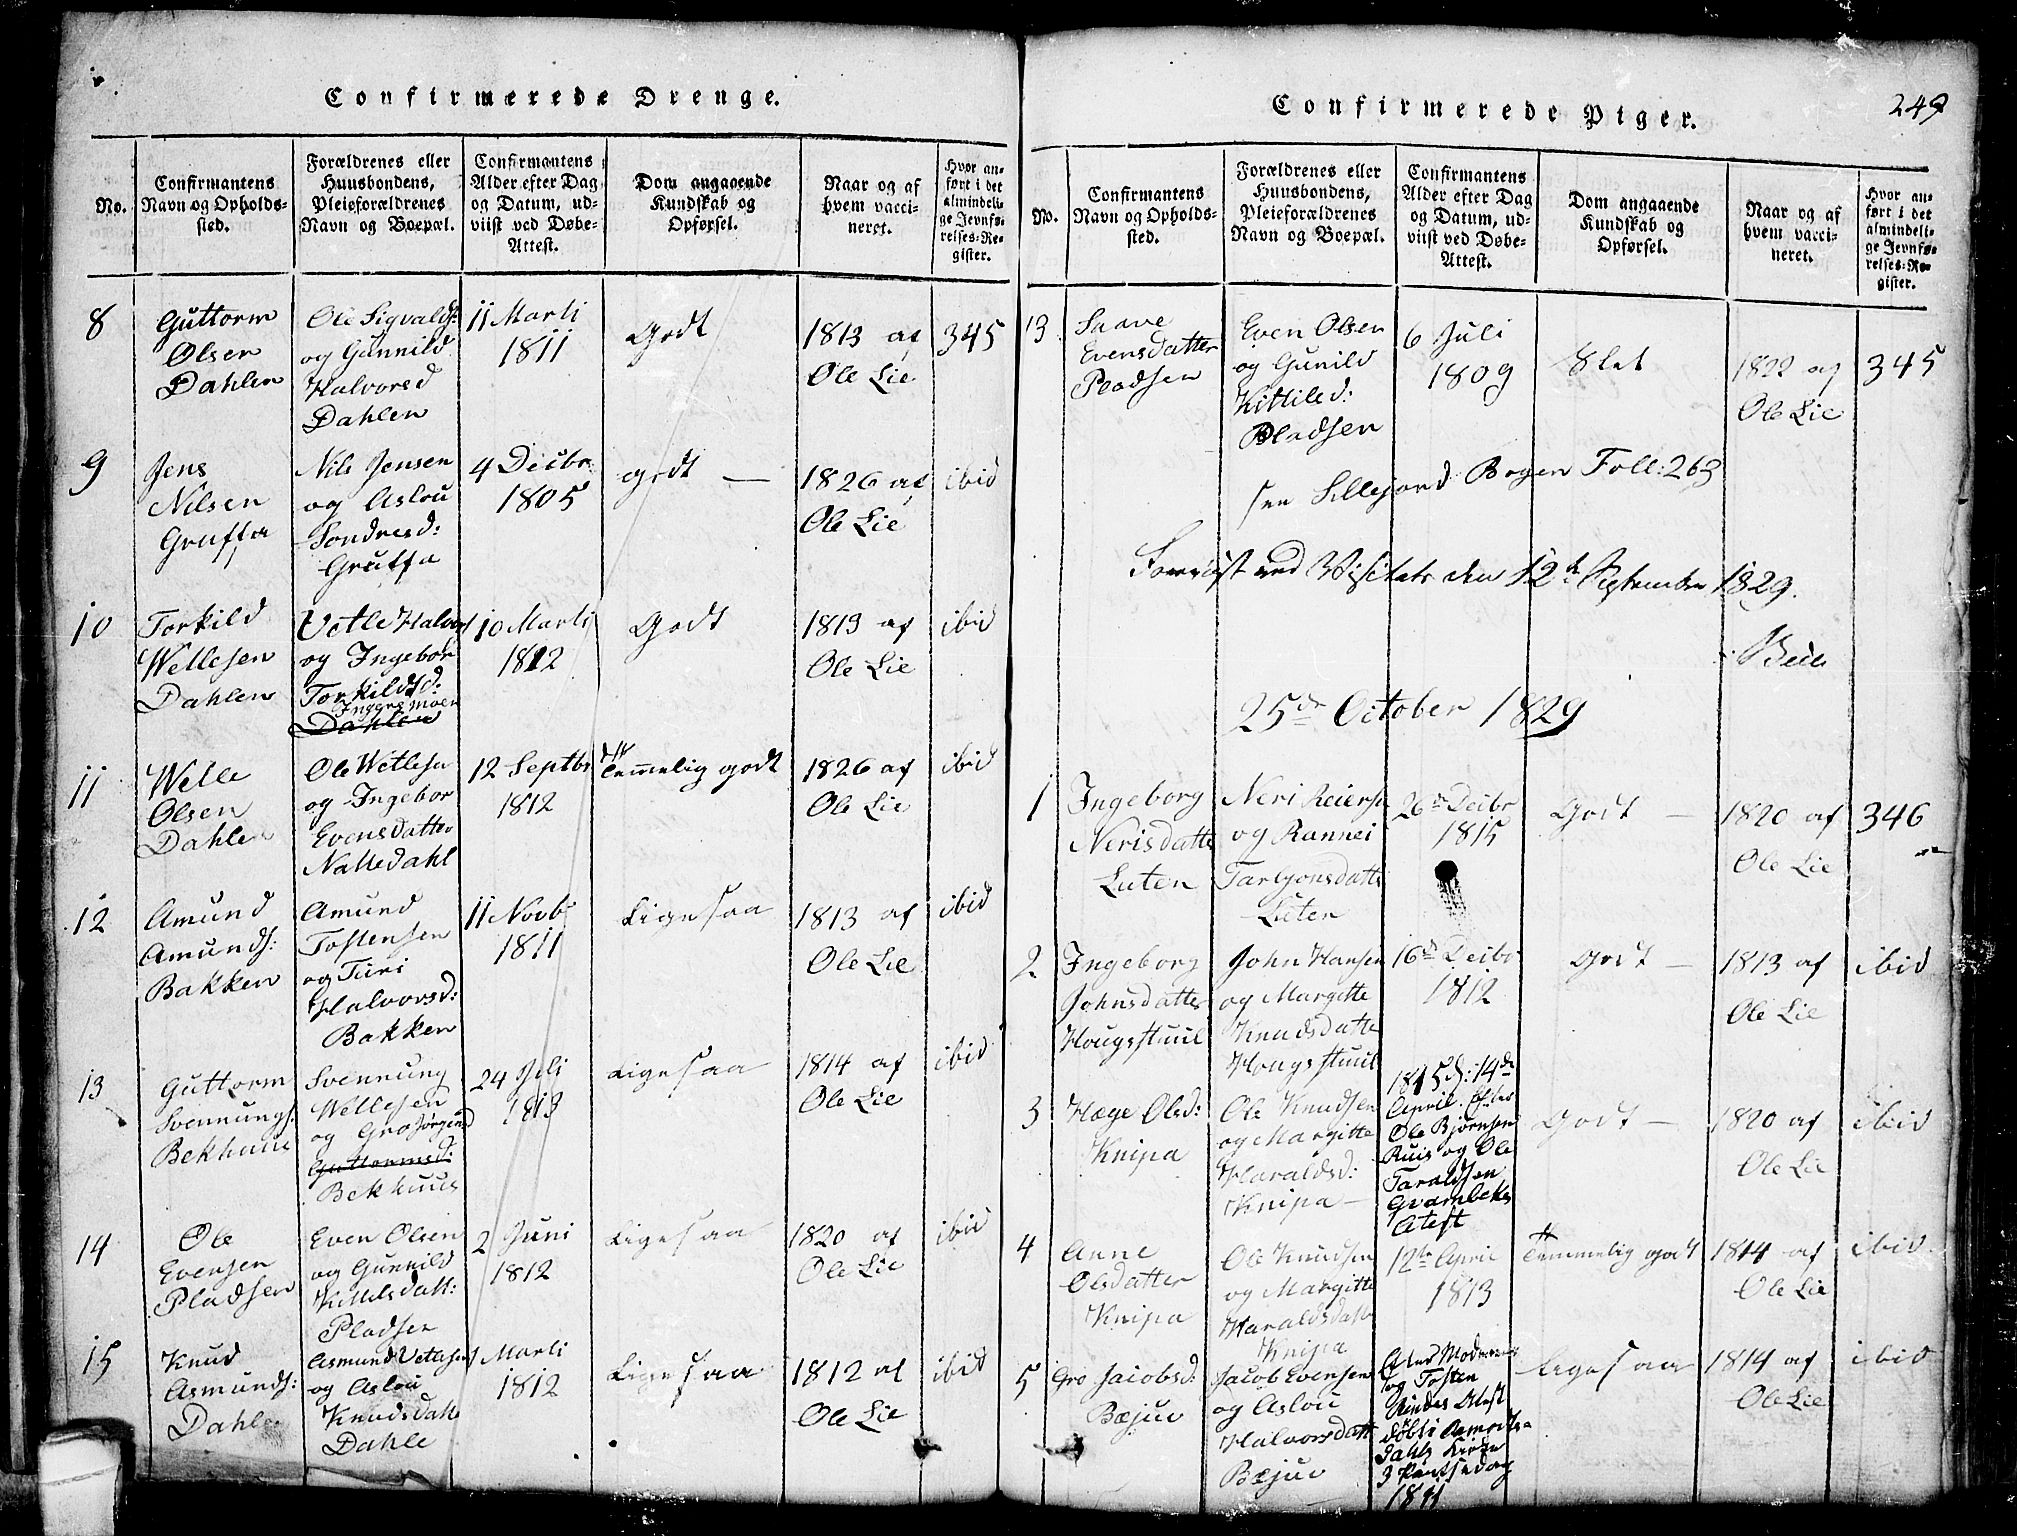 Confirmerede Drenge.
No.
Confirmantens
Navn og Opholds-
sted.
Forældrenes eller
Huusbondens,
Pleieforældrenes
Navn og Boepæl.
Confirmantens
Alder efter Dag
og Datum, ud-
viist ved Døbe-
Attest.
Dom angaaende
Kundskab og
Opførsel.
Naar og af
hvem vacci-
neret.
Hvor an-
ført i det
almindeli-
ge Jevnfø-
relses-Re-
gister.
8
Guttorm
Olsen
Dahlen
Ole Sigvalds:
og Gunnild
Halvorsd
Dahlen
11 Marti
1811
Godt
1813 af
Ole Lie
345
9
Jens
Nilsen
Gruffa
Nils Jensen
og Aslou
Sondresd:
Gruffa
4 Decbr
1805
godt —
1826 af
Ole Lie
ibid
10
Torkild
Wellesen
Dahlen
Vetle Halvors
og Ingebor
Torkildsd:
Ingersmoen
Dahlen
10 Marti
1812
Godt
1813 af
Ole Lie
ibid
11
Welle
Olsen
Dahlen
Ole Wetlesen
og Ingebor
Evensdatter
Nattedahl
12 Septbr
1812
Temmelig godt
1826 af
Ole Lie
ibid
12
Amund
Amunds:
Bakken
Amund
Tostensen
og Turi
Halvorsd:
Bakken
11 Novbr
1811
Ligesaa
1813 af
Ole Lie
ibid
13
Guttorm
Svennungs:
Bekhuus
Svennung
Wellesen
og Gro Jørgend
Guttormsd:
Bekhuus
24 Juli
1813
Ligesaa
1814 af
Ole Lie
ibid
14
Ole
Evensen
Pladsen
Even Olsen
og Gunnild
Kittilsdatt:
Pladsen
2 Juni
1812
Ligesaa
1820 af
Ole Lie
ibid
15
Knud
Asmunds:
Dahle
Asmund Vetlesen
og Aslou
Knudsdatt
Dahle
1 Marti
1812
Ligesaa
1812 af
Ole Lie
ibid
Confirmerede Piger.
249
No.
Confirmantens
Navn og Opholds-
sted.
Forældrenes eller
Huusbondens,
Pleieforældrenes
Navn og Boepæl.
Confirmantens
Alder efter Dag
og Datum, ud-
viist ved Døbe-
Attest.
Dom angaaende
Kundskab og
Opførsel.
Naar og af
hvem vacci-
neret.
Hvor an-
ført i det
almindeli-
ge Jevnfø-
relses-Re-
gister.
13
Saave
Evensdatter
Pladsen
Even Olsen
og Gunild
Kittilsd:
Pladsen
6 Juli
1809
Slet
1822 af
Ole Lie
345
see Sillejord Bogen Foll: 263
Foreviist ved Visitats den 12te September 1829.
25de October 1829
1
Ingeborg
Nerisdatte
Luten
Neri Reiersen
og Rannei
Tarljonsdatte
Luten
26de Decbr
1815
Godt —
1820 af
Ole Lie
346
2
Ingeborg
Johnsdatter
Hougstuul
John Hansen
og Margitte
Knudsdatte
Hougstuul
16de Decbr
1812
Godt —
1813 af
Ole Lie
ibid
3
Hæge Olsd:
Knipa
Ole Knudsen
og Margitte
Haraldsd:
Knipa —
1815 d: 14de
April. Efter
Ole Bjørnsen
Ruis og Ole
Taraldsen
Grambeks
Atest
Godt —
1820 af
Ole Lie
ibid
4
Anne
Olsdatter
Knipa
Ole Knudsen
og Margitte
Haraldsdatte
Knipa
12te April
1813
Temmelig godt
1814 af
Ole Lie
ibid
5
Gro Jacobsd:
Bæjuu
Jacob Evensen
og Aslou
Halvorsdatt
Bæjuu
Efter Moderens
og Tosten
Rindes Atest
døbt i
Dahls Kirke
3
1811
Ligesaa
1814 af
Ole Lie
ibid